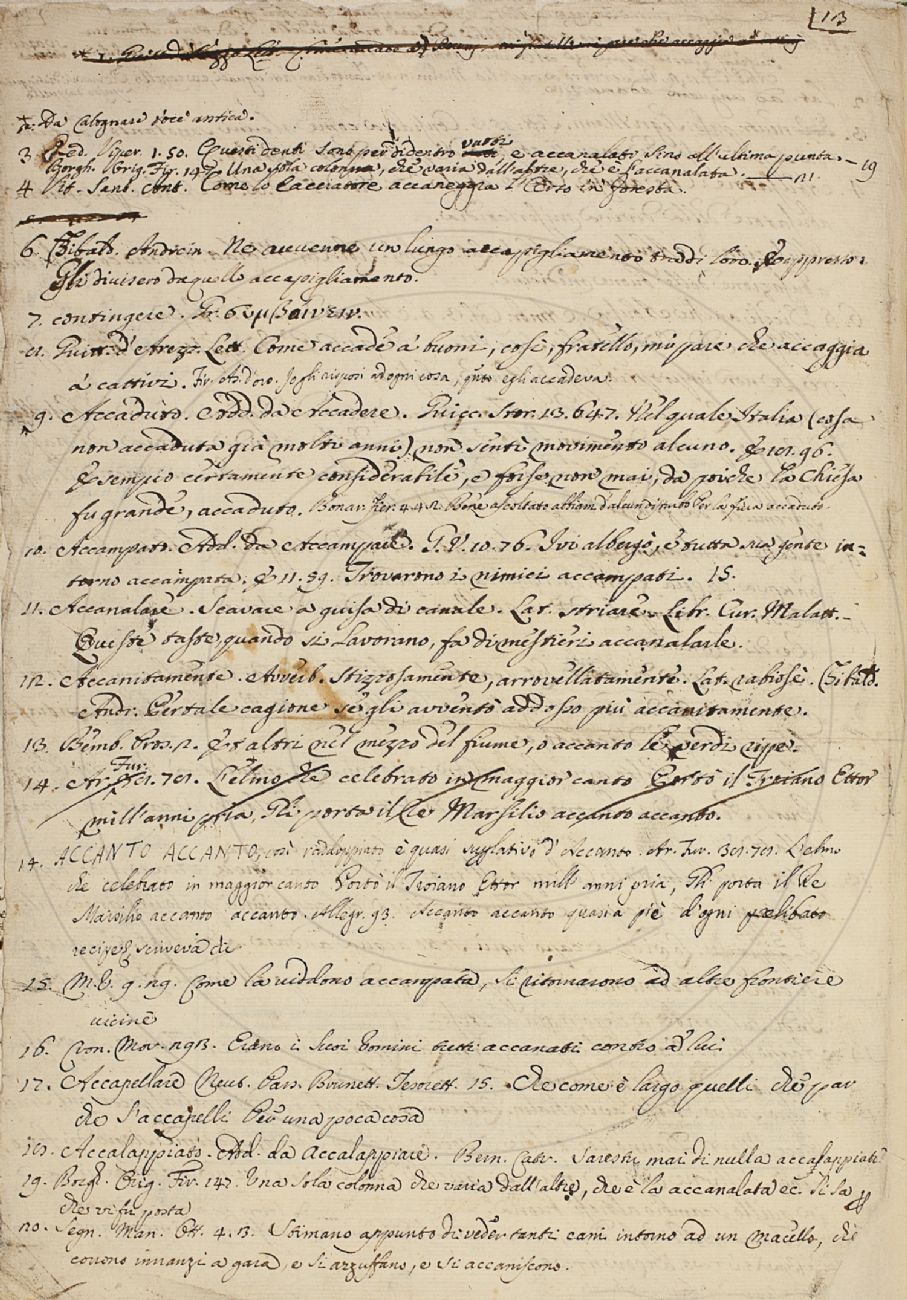 13
2. Da Calognare voce antica.
3 Red. Viper. 1. 50. Questi denti sono per didentro vuoti, e accanalati sino all'ultima punta. — 19
Borgh. Orig. Fir. 147. Una sola colonna, che varia dall'altre, che è l'accanalata. — 21.
4 Vit. Sant. Ant. Come lo Cacciatore accaneggia l'Cervo in foresta.
6. Tibald. Andrein. Ne avvenne un lungo accapigliamento traddi loro. E appresso:
Gli divisero da quello accapigliamento.
7. contingere. Gr. συμβαίνειν.
8. Guitt. d'Arezz. Lett. Come accade a' buoni, così, fratello, mi pare che accaggia
a' cattivi. Fir. As. d'oro.
9. Accaduto. Add. da Accadere. Guicc. Stor. 13. 647. Nel quale Italia (cosa
non accaduta già molti anni) non sentì movimento alcuno. E 18. 96.
Esempio certamente considerabile, e forse non mai, da poiche la Chiesa
fu grande, accaduto. Bonar. Fier. 4. 4. 2. Bene ascoltato abbiam d'alcun
10. Accampato. Add. da Accampare. G. V. 10. 76. Ivi albergò, e tutta sua gente in-
torno accampata. E 11. 89. Trovarono i nimici accampati. 15.
11. Accanalare. Scavare a guisa di canale. Lat. striare. Libr. Cur. Malatt. —
Queste taste, quando si lavorano, fa di mestieri accanalarle.
12. Accanitamente. Avverb. Stizzosamente, arrovellatamente. Lat. rabiosè. Tibald.
Andr. Per tale cagione se gli avventò addosso più accanitamente.
13. Bemb. Pros. 2. E s'altri nel mezzo del fiume, o accanto le verdi ripe.
14. Ar. Fur. 38. 78. L'elmo che celebrato in maggior canto Portò il Troiano Ettor
mill'anni pria, Gli porta il Re Marsilio accanto accanto.
14. ACCANTO ACCANTO, così raddoppiato è quasi superlativo d'Accanto. Ar. Fur. 38. 78. L'elmo
che celebrato in maggior canto Portò il Troiano Ettor mill'anni pria, Gli porta il Re
Marsilio accanto accanto. Allegr. 93. Accanto accanto quasi a piè d'ogni prelibato
recipe, scriveva
15. M. V. 9. 29. Come la viddono accampata, si ritornarono ad altre frontiere
vicine
16. Cron. Mor. 293. Erano i suoi Uomini tutti accanati contro a lui
17. Accapellare Neut. Pass. Brunett. Tesorett. 15. Che come è largo quelli che par
che s'accapelli Per una poca cosa
18. Accalappiato. Add. da Accalappiare. Bern. Catr. Saresti mai di nulla accalappiato
19. Borgh. Orig. Fir. 147. Una sola colonna che varia dall'altre, che è la accanalata ec. si sa
che vi fu posta
20. Segn. Man. Ott. 4. 3. Stimano appunto di veder tanti cani intorno ad un macello, che
corrono innanzi a gara, e si azzuffano, e si accaniscono.